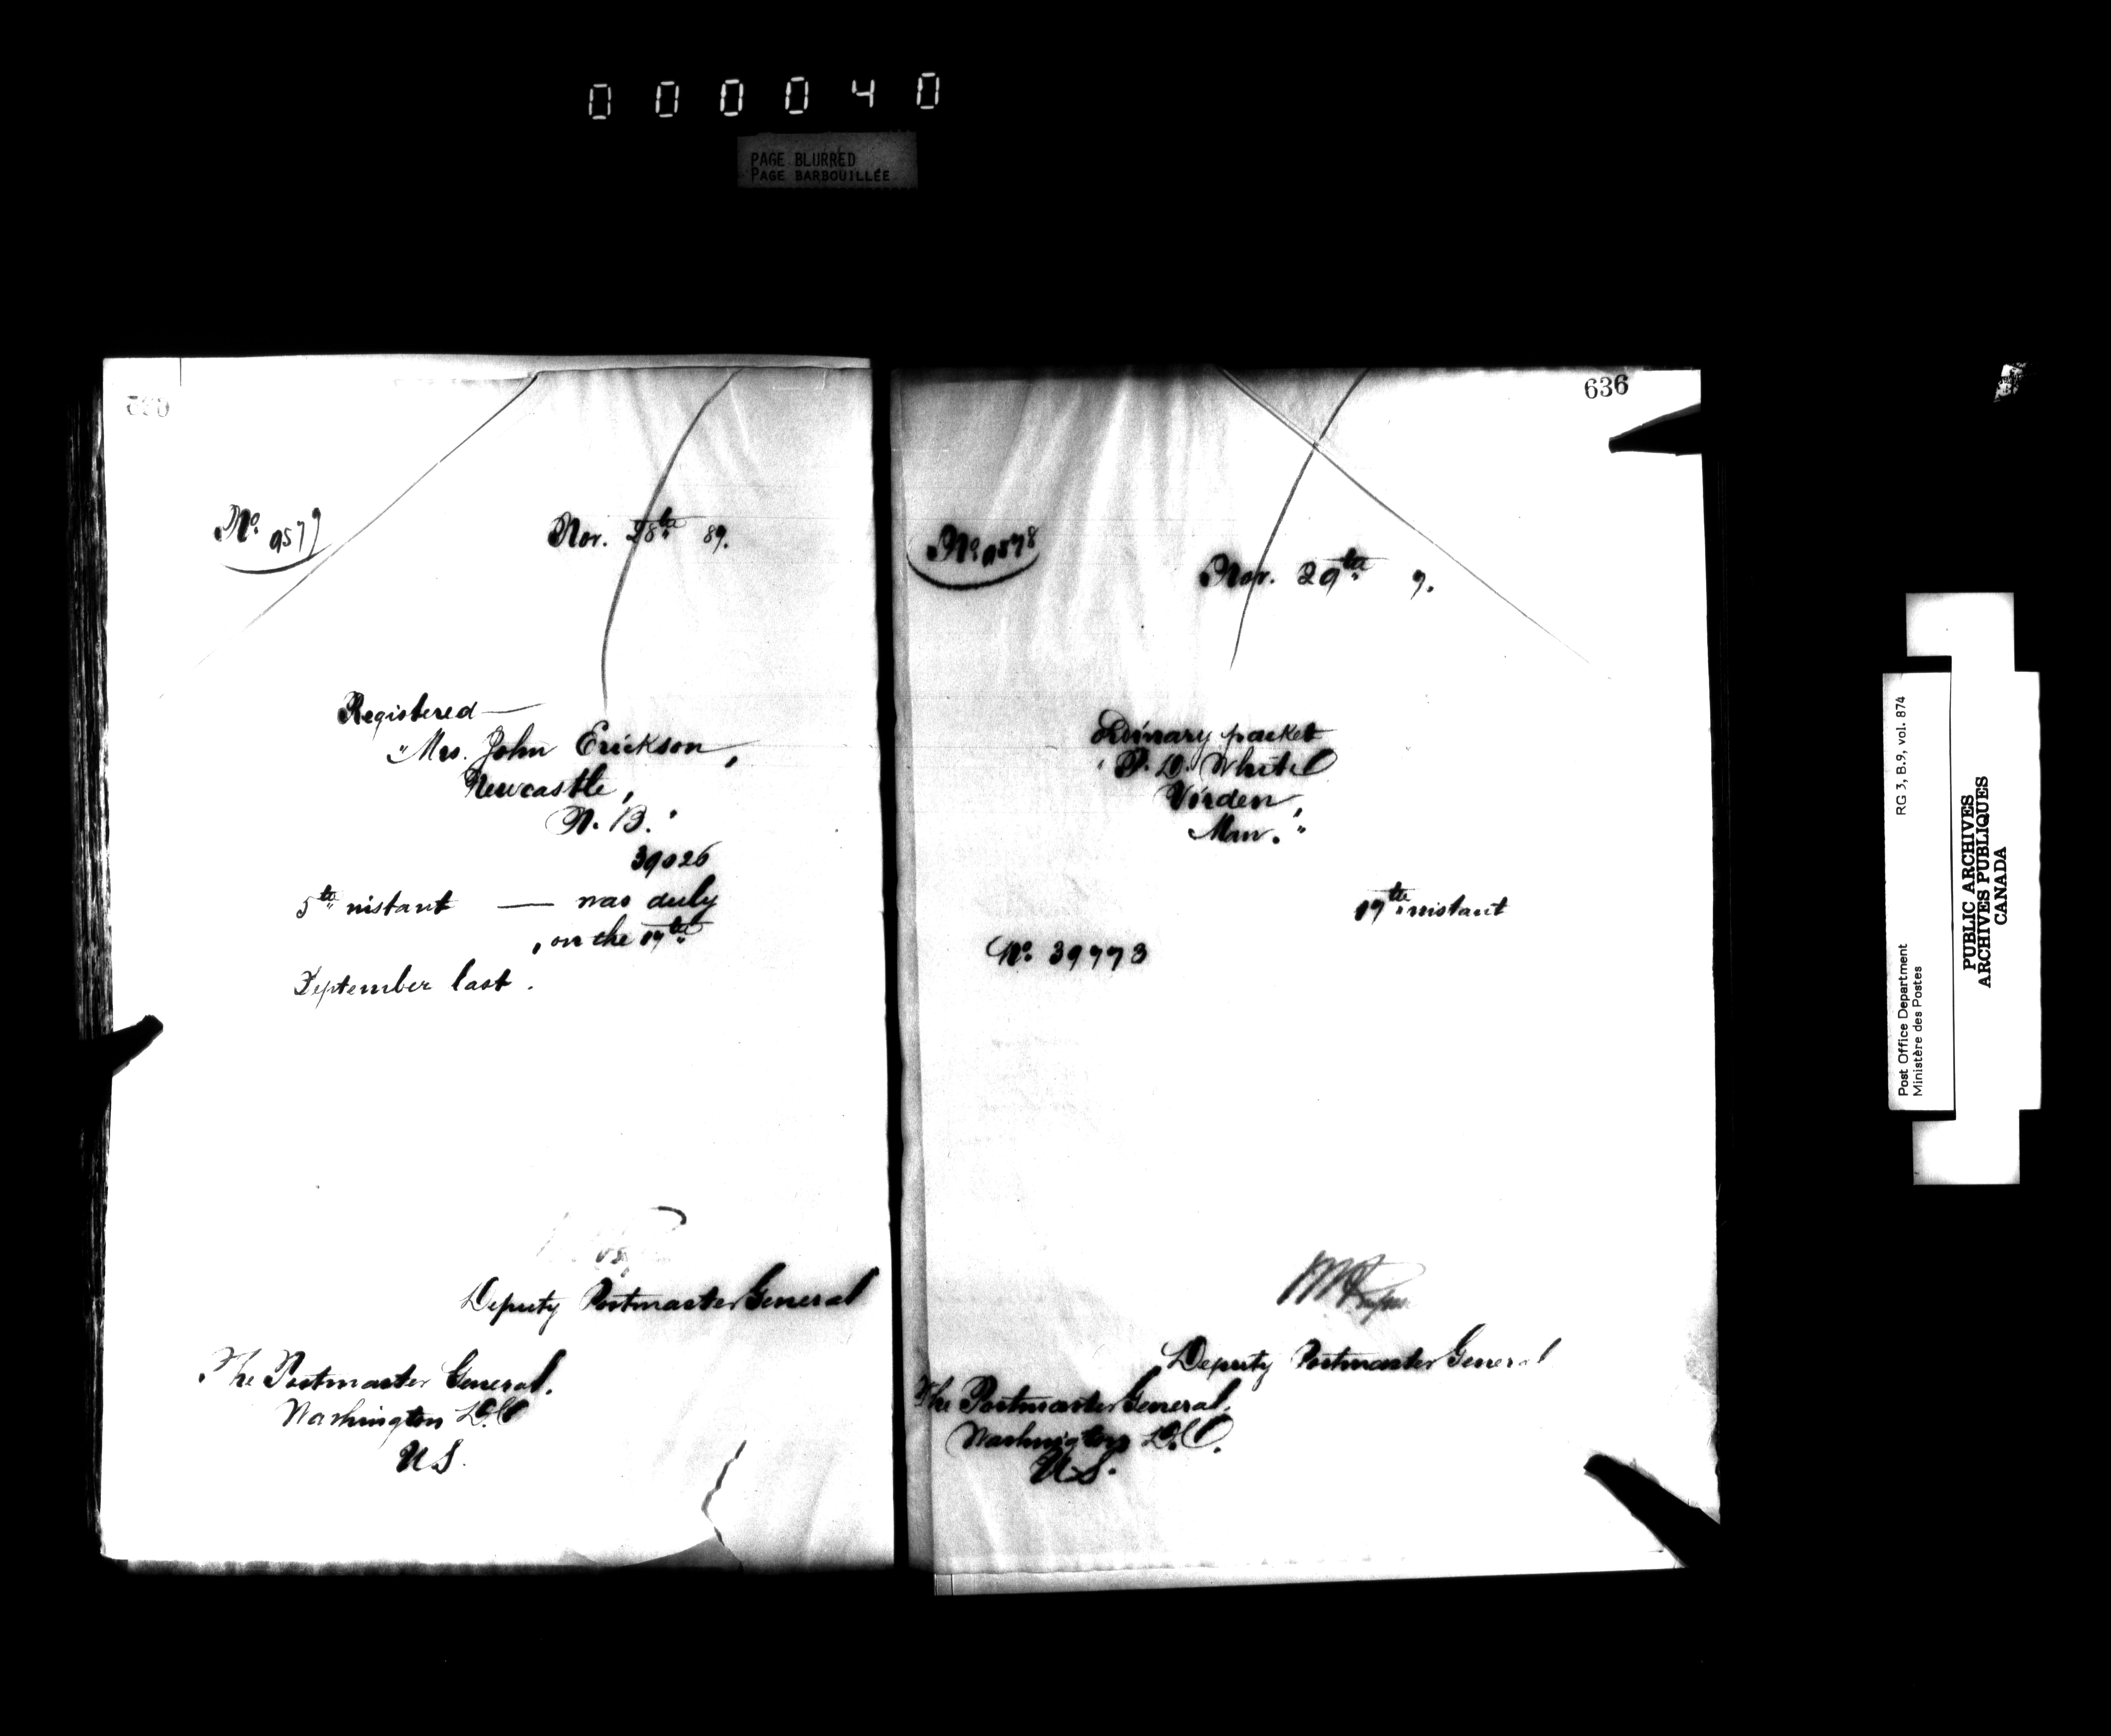 000040
PAGE BLURRED
PAGE BARBOUILLÉE
No. 9577
Nov. 28th 89.
Registered —
"Mrs. John Erickson,
Newcastle,
N. B."
39026
5th instant — was duly
, on the 17th
September last.
Deputy Postmaster General
The Postmaster General.
Washington D.C.
U.S.
636
No. 9578
Nov. 29th 9.
Ordinary packet
White
Virden,
Man."
17th instant
No. 39773
Deputy Postmaster General
The Postmaster General,
Washington D.C.
U.S.
Post Office Department
Ministère des Postes
RG 3, B.9, vol. 874
PUBLIC ARCHIVES
ARCHIVES PUBLIQUES
CANADA